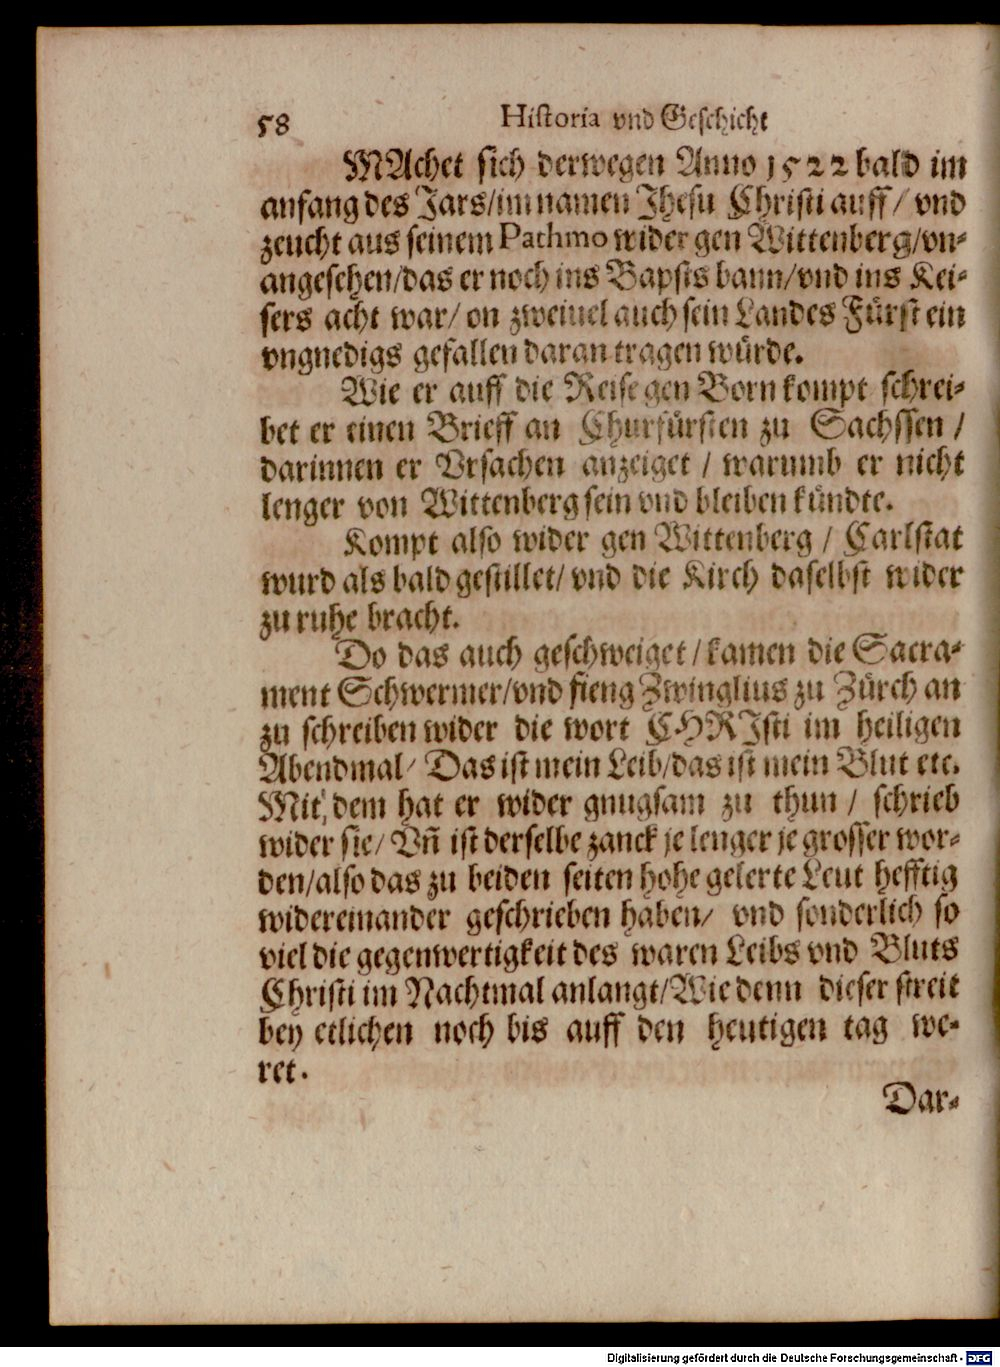 58 Historia vnd Geschicht
MAchet sich derwegen Anno 1522 bald im
anfang des Jars/im namen Jhesu Christi auff/ vnd
zeucht aus seinem Pathmo wider gen Wittenberg/vn-
angesehen/das er noch ins Bapsts bann/vnd ins Kei-
sers acht war/ on zweiuel auch sein Landes Fürst ein
vngnedigs gefallen daran tragen würde.
Wie er auff die Reise gen Born kompt schrei-
bet er einen Brieff an Churfürsten zu Sachssen /
darinnen er Vrsachen anzeiget / warumb er nicht
lenger von Wittenberg sein vnd bleiben kündte.
Kompt also wider gen Wittenberg / Carlstat
wurd als bald gestillet/ vnd die Kirch daselbst wider
zu ruhe bracht.
Do das auch geschweiget / kamen die Sacra-
ment Schwermer/vnd fieng Zwinglius zu Zürch an
zu schreiben wider die wort CHRIsti im heiligen
Abendmal/ Das ist mein Leib/das ist mein Blut etc.
Mit dem hat er wider gnugsam zu thun / schrieb
wider sie/ Vñ ist derselbe zanck je lenger je grosser wor-
den/also das zu beiden seiten hohe gelerte Leut hefftig
widereinander geschrieben haben/ vnd sonderlich so
viel die gegenwertigkeit des waren Leibs vnd Bluts
Christi im Nachtmal anlangt/Wie denn dieser streit
bey etlichen noch bis auff den heutigen tag we-
ret.
Dar-
Digitalisierung gefördert durch die Deutsche Forschungsgemeinschaft - DFG